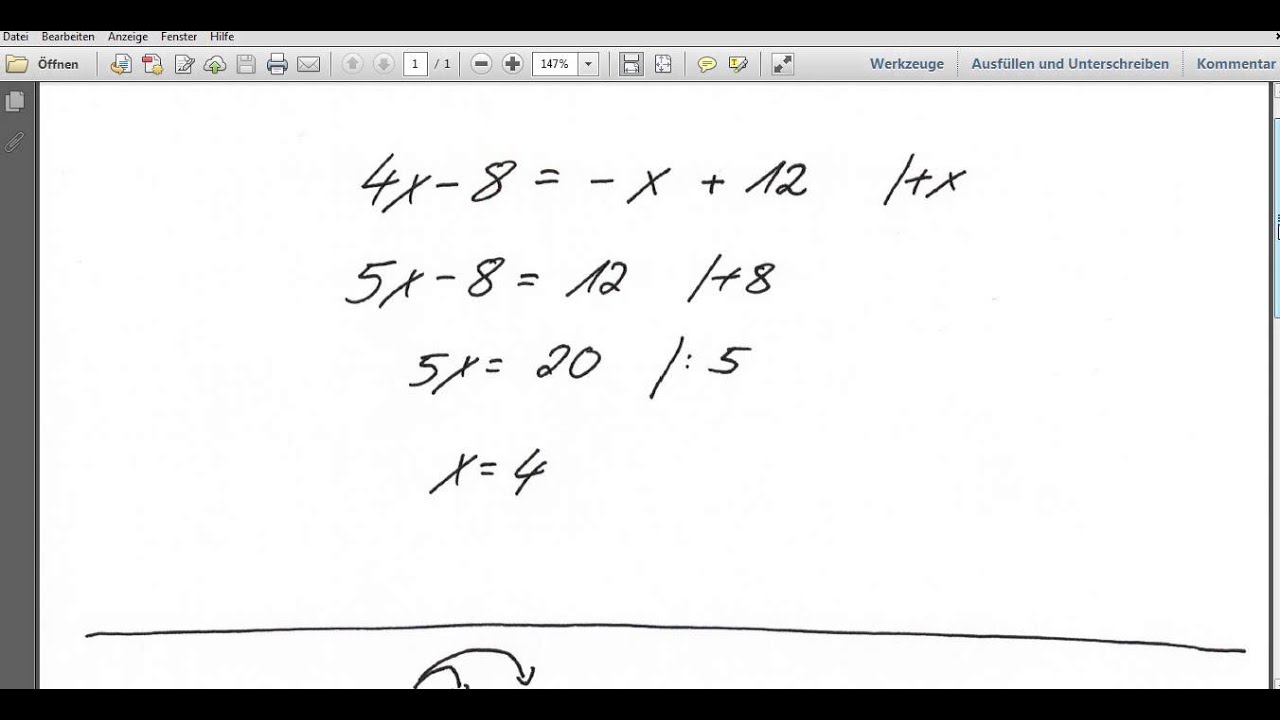 Datei Bearbeiten Anzeige Fenster Hilfe
Öffnen 1 / 1 147% Werkzeuge Ausfüllen und Unterschreiben Kommentar
4x - 8 = - x + 12 /+x
5x - 8 = 12 /+8
5x = 20 /: 5
x = 4